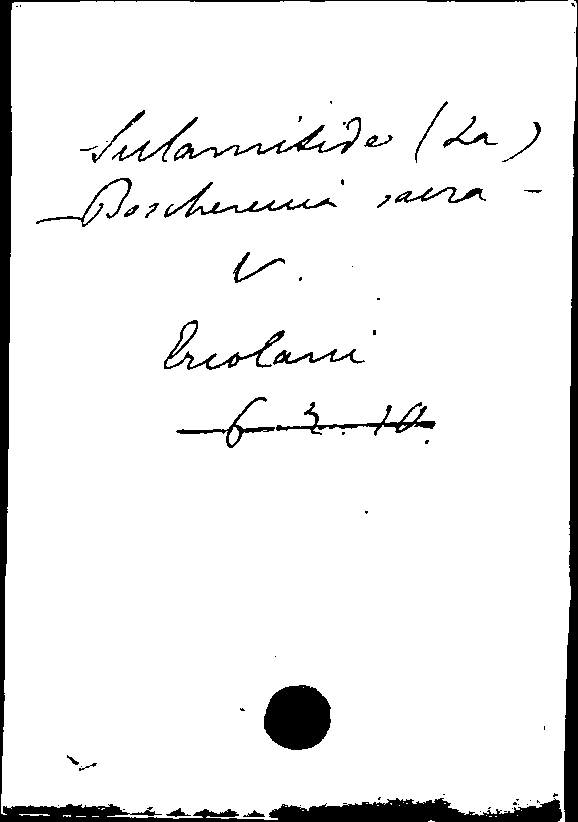 Sulamitide (La)
Boschereccia sacra -
V.
Ercolani
6.2.10.